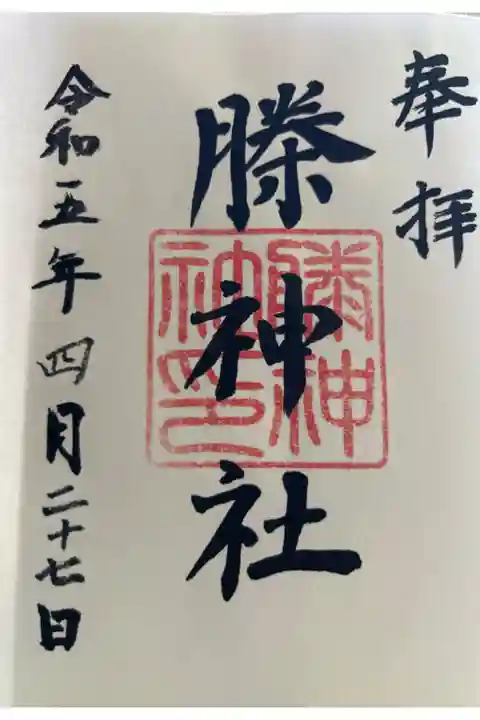 奉拝
滕神社
令和五年四月二十七日
滕神
社印